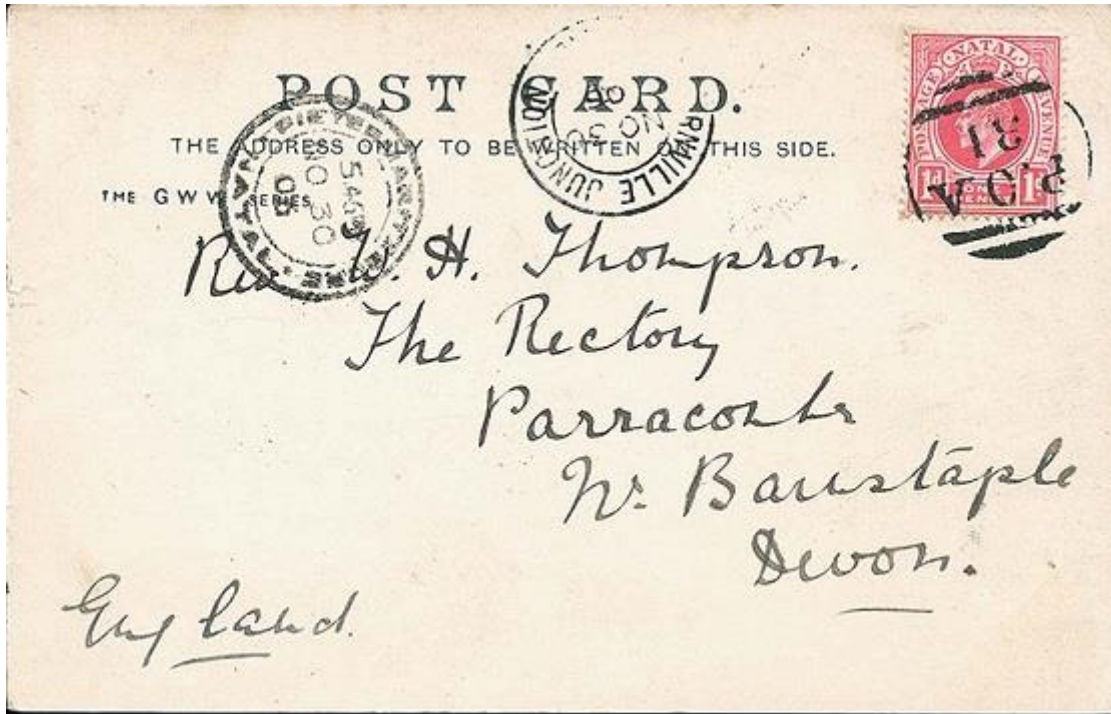 POST CARD.
THE ADDRESS ONLY TO BE WRITTEN ON THIS SIDE.
THE G W W SERIES
PIETERMARITZBURG NATAL
NO 30
05
JUNCTION
NO 30
POSTAGE NATAL REVENUE
1d ONE PENNY 1d
P.O.A
31
Rev W. H. Thompson.
The Rectory
Parracombe
Nr. Barnstaple
Devon.
England.